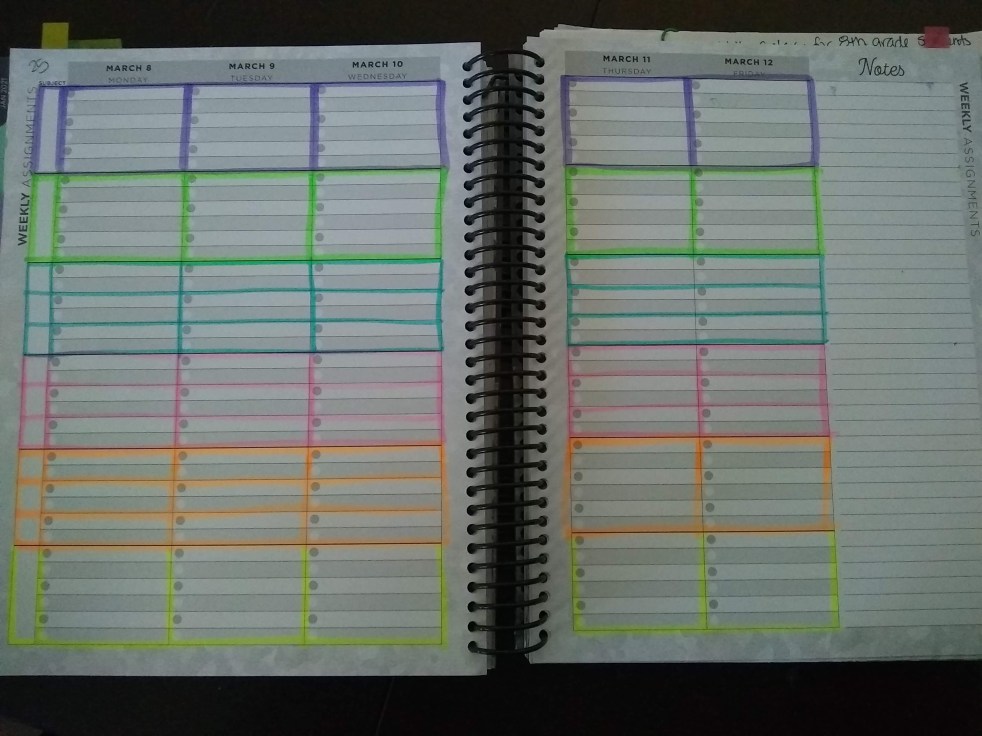 MARCH 8
MONDAY
MARCH 9
TUESDAY
MARCH 10
WEDNESDAY
SUBJECT
WEEKLY ASSIGNMENTS
JAN 2021
MARCH 11
THURSDAY
MARCH 12
FRIDAY
for 8th grade
Notes
WEEKLY ASSIGNMENTS